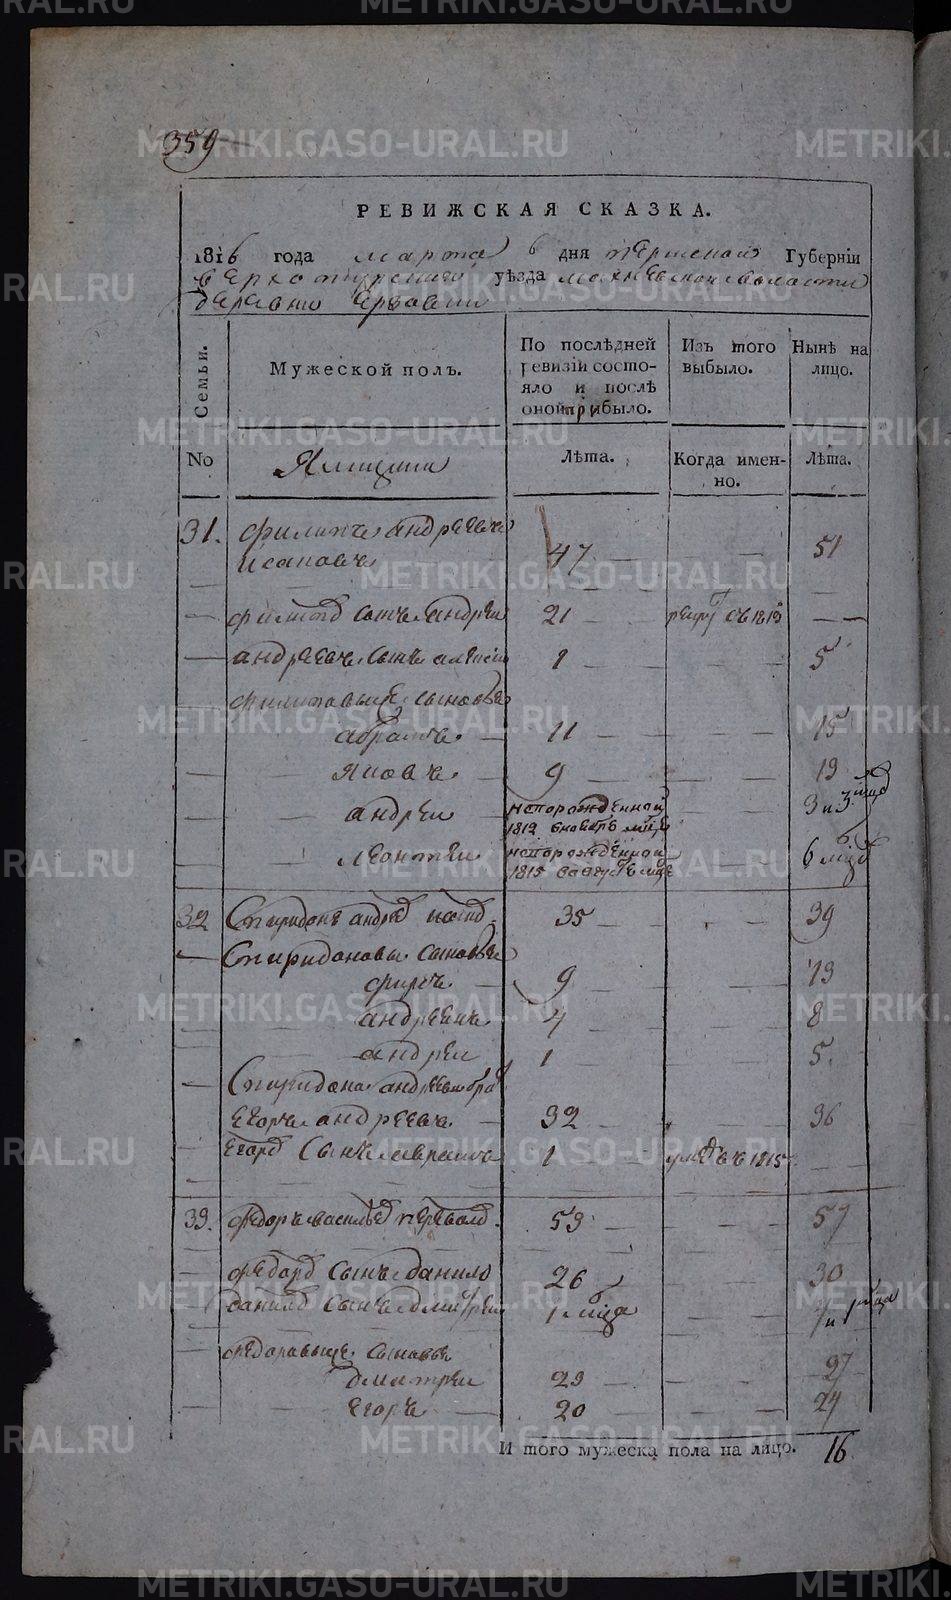 359
РЕВИЖСКАЯ СКАЗКА.
1816 года марта 6 дня пермской Губернiи
верхотурскаго уѣзда махневской волости
деревни
Семьи. Мужеской полъ. По послѣдней ревизiи состояло и послѣ оной прибыло. Изъ того выбыло. Нынѣ на лицо.
No Ямщики Лѣта. Когда именно. Лѣта.
31. филипъ андреевъ
исаковъ 47 51
филипов сынъ андреи 21 1813
андреевъ сынъ алексеи 1 5
филиповы сыновья
абрамъ 11 15
яковъ 9 13
андреи новорожденной 1812 3 и 3 мцов
леонтеи новорожденной 1815 6 мцов
32 Спиридонъ андреев 35 39
Спиридоновы сыновья
фирсъ 9 13
андреянъ 4 8
андреи 1 5.
Спиридона андреева брат
егоръ андреевъ 32 36
Егоров сынъ авраамъ 1 умре въ 1815
33. федоръ васильев 53 57
федоров сынъ данило 26 30
данилов сынъ дмитреи 1 мца
федоровы сыновья
дмитреи 23 27
егоръ 20 24
И того мужеска пола на лицо. 16
METRIKI.GASO-URAL.RU